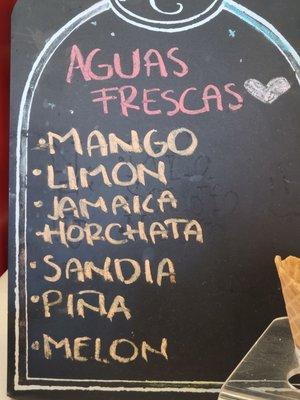 AGUAS
FRESCAS
·MANGO
·LIMON
·JAMAICA
·HORCHATA
·SANDIA
·PIÑA
·MELON